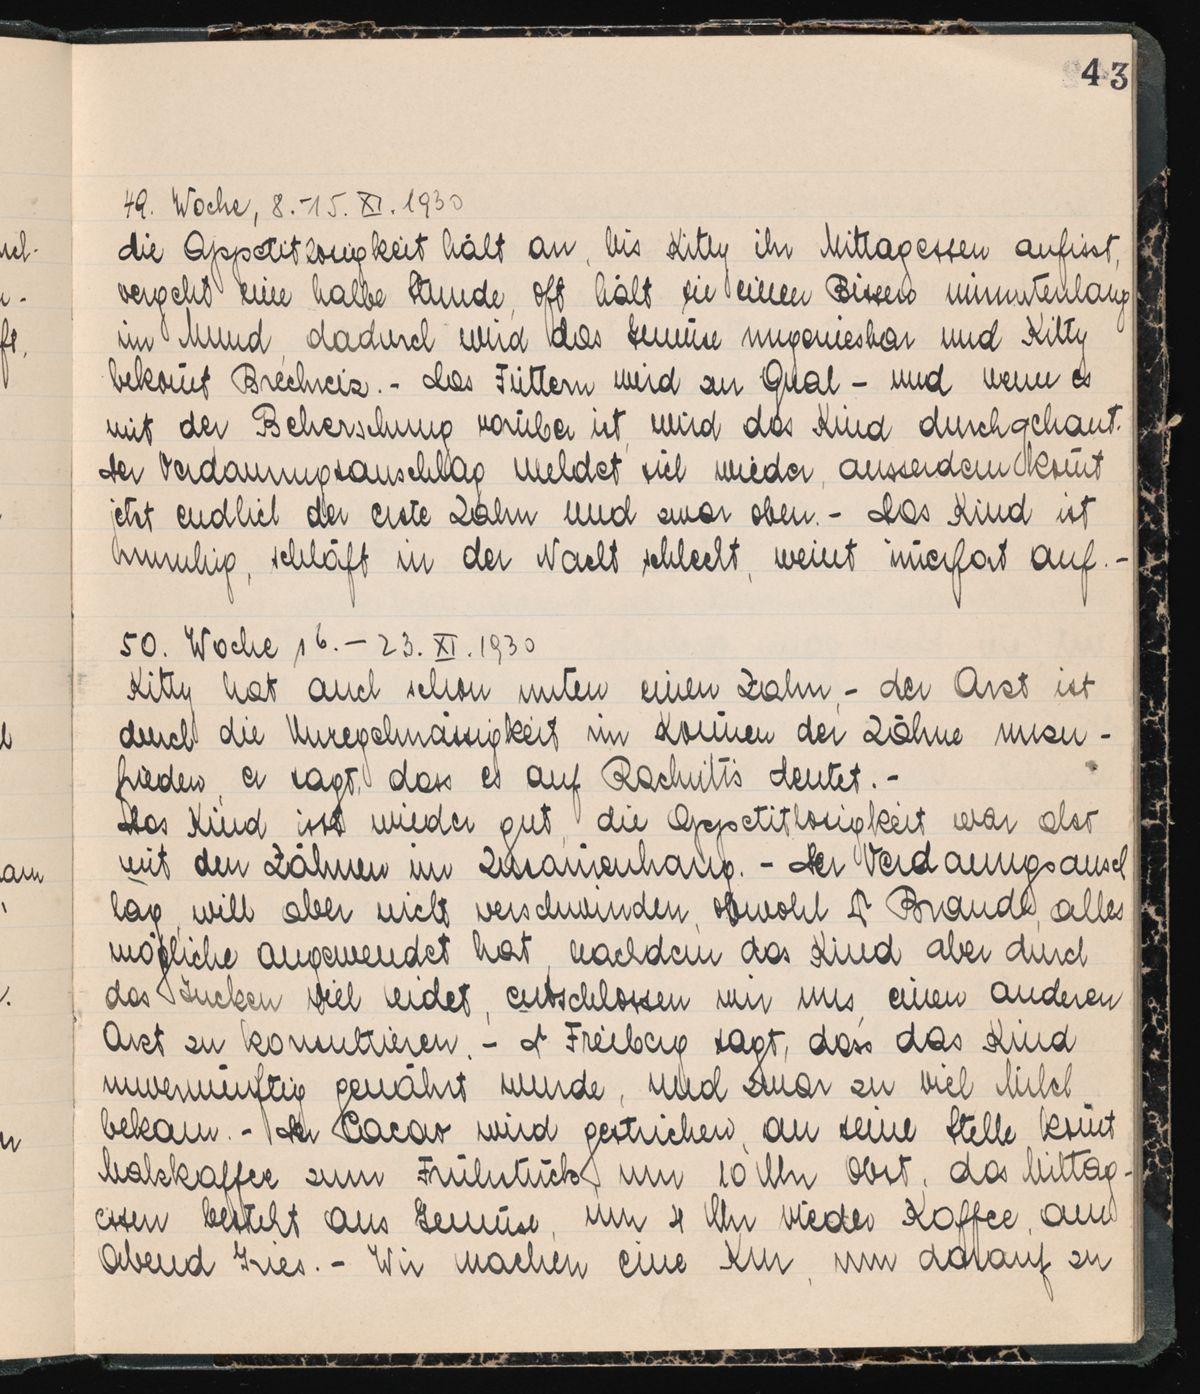 43
49. Woche, 8.-15. XI. 1930
die Appetitlosigkeit hält an, bis Kitty ihr Mittagessen aufisst,
vergeht eine halbe Stunde, oft hält sie einen Bissen minutenlang
im Mund, dadurch wird das Gemüse ungeniesbar und Kitty
bekom̄t Brechreiz. - Das Füttern wird zur Qual - und wenn es
mit der Beherschung vorüber ist, wird das Kind durchgehaut.
Der Verdauungsauschlag meldet sich wieder, ausserdem kom̄t
jetzt endlich der erste Zahn und zwar oben. - Das Kind ist
unruhig, schläft in der Nacht schlecht, weint im̄erfort auf. -
50. Woche 16. - 23. XI. 1930
Kitty hat auch schon unten einen Zahn, - der Arzt ist
durch die Unregelmässigkeit im Kom̄en der Zähne unzu-
frieden, er sagt, dass es auf Rachitis deutet. -
Das Kind isst wieder gut, die Appetitlosigkeit war also
mit den Zähnen im Zusam̄enhang. - Der Verdauungsausch
lag will aber nicht verschwinden, obwohl Dr Brande alles
mögliche angewendet hat, nachdem das Kind aber durch
das Jucken viel leidet, entschlossen wir uns, einen anderen
Arzt zu konsultieren. - Dr Freiberg sagt, dass das Kind
unvernünftig genährt wurde, und zwar zu viel Milch
bekam. - Der Cacao wird gestrichen, an seine Stelle kom̄t
Malzkaffee zum Frühstück, um 10 Uhr Obst, das Mittag-
essen besteht aus Gemüse, um 4 Uhr wieder Kaffee, am
Abend Gries. - Wir machen eine Kur, um darauf zu